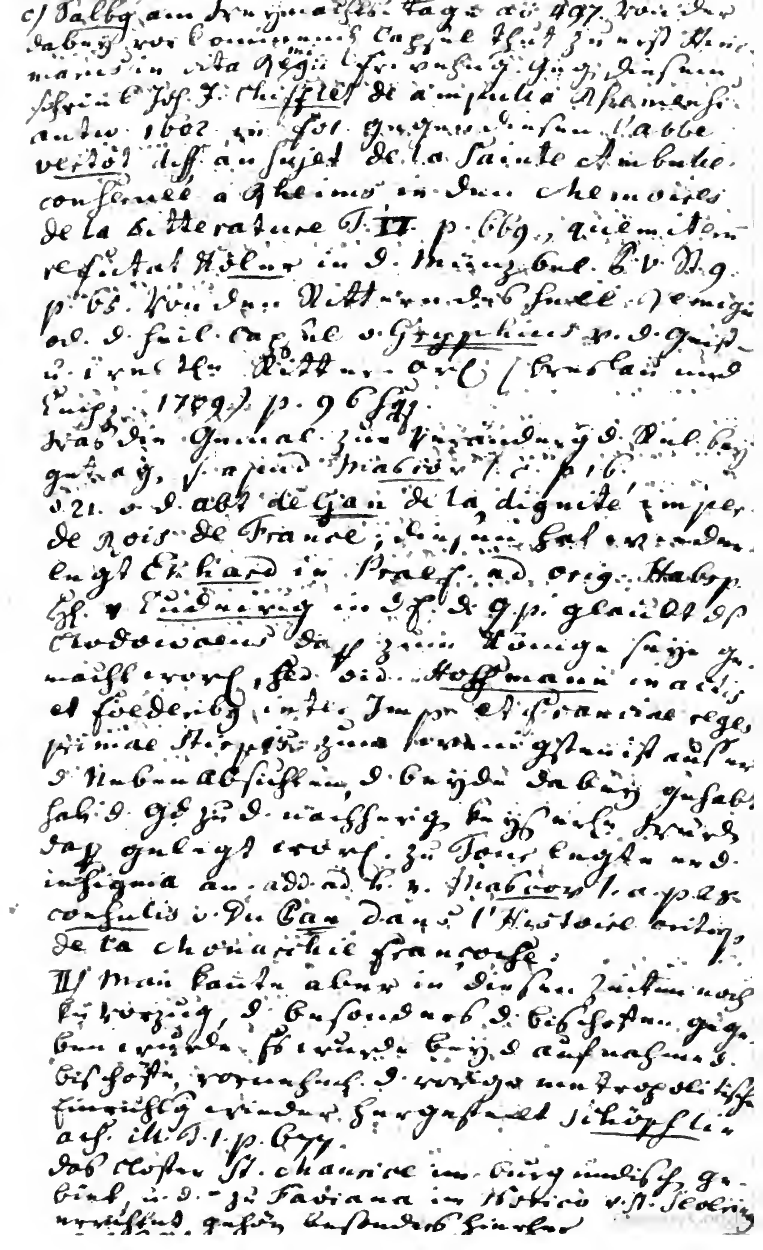 c) Salbg am drey tage ao 497. Von der
dabey vorkommend Capsul thut zu erst Hinc-
marus in vita
schrieb Joh. J. Chifflet de ampulla Rhemensi
antw. 1602 in fol. gegen diesen l'abbe
vertot diss. au sujet de la Sainte Ambulle
conservee a Rheims in den Memoires
de la Litterature T. II. p. 669., quem item
refutat Köler in d. Münzbel. P. V St. 9.
p. 65. Von den Rittern des heil. Remigii
od. d. heil. Capsul v. Gryphius v. d. geist-
u. weltl. Ritter ord. (breslau und
Leipz. 1709.) p. 96 sqq.
was die Gemal. zur Veränderg d. Rel. bey
getrag. v. apud Mascov l. c. p. 16.
v. d. abt de Gan de la dignite imper.
de Rois de France; diesen hat wieder
legt Ekhard in Praef. ad orig. Habsp.
H. v. Ludewig in d. glaubt ds
Clodovaeus das zum Könige seye ge-
macht word, sed vid. Hoffmann in actis
et foederibq inter Imper. et Franciae reges
primae Stirpis zum wenigsten ist ausser
d. Nebenabsichten, d. beyde dabey gehabt
hab. d. zu d. nachherig keyserl. würde
das gelegt word. zu Tour legte er d.
insignia an. add. ad h. v. Mascov l. a. p. 28.
consulis v. Du Ban Dans l'Histoire critiq
de la Monarchie Françoise.
II) Man kante aber in diesen Zeiten noch
kn Vorzug, d. besonders d. bischofen gege-
ben wurde. Es wurde bey d. aufnahme d.
bischöfe, vornehml. d. vorige metropolitische
Einrichtg wieder hergestellt Schöpflin
als. ill. T. I. p. 677.
das Closter St. Maurice im burgundisch. ge-
biet, u. d. zu Faviana in Norico v. St. Severin
errichtet gehör. besonders hierher